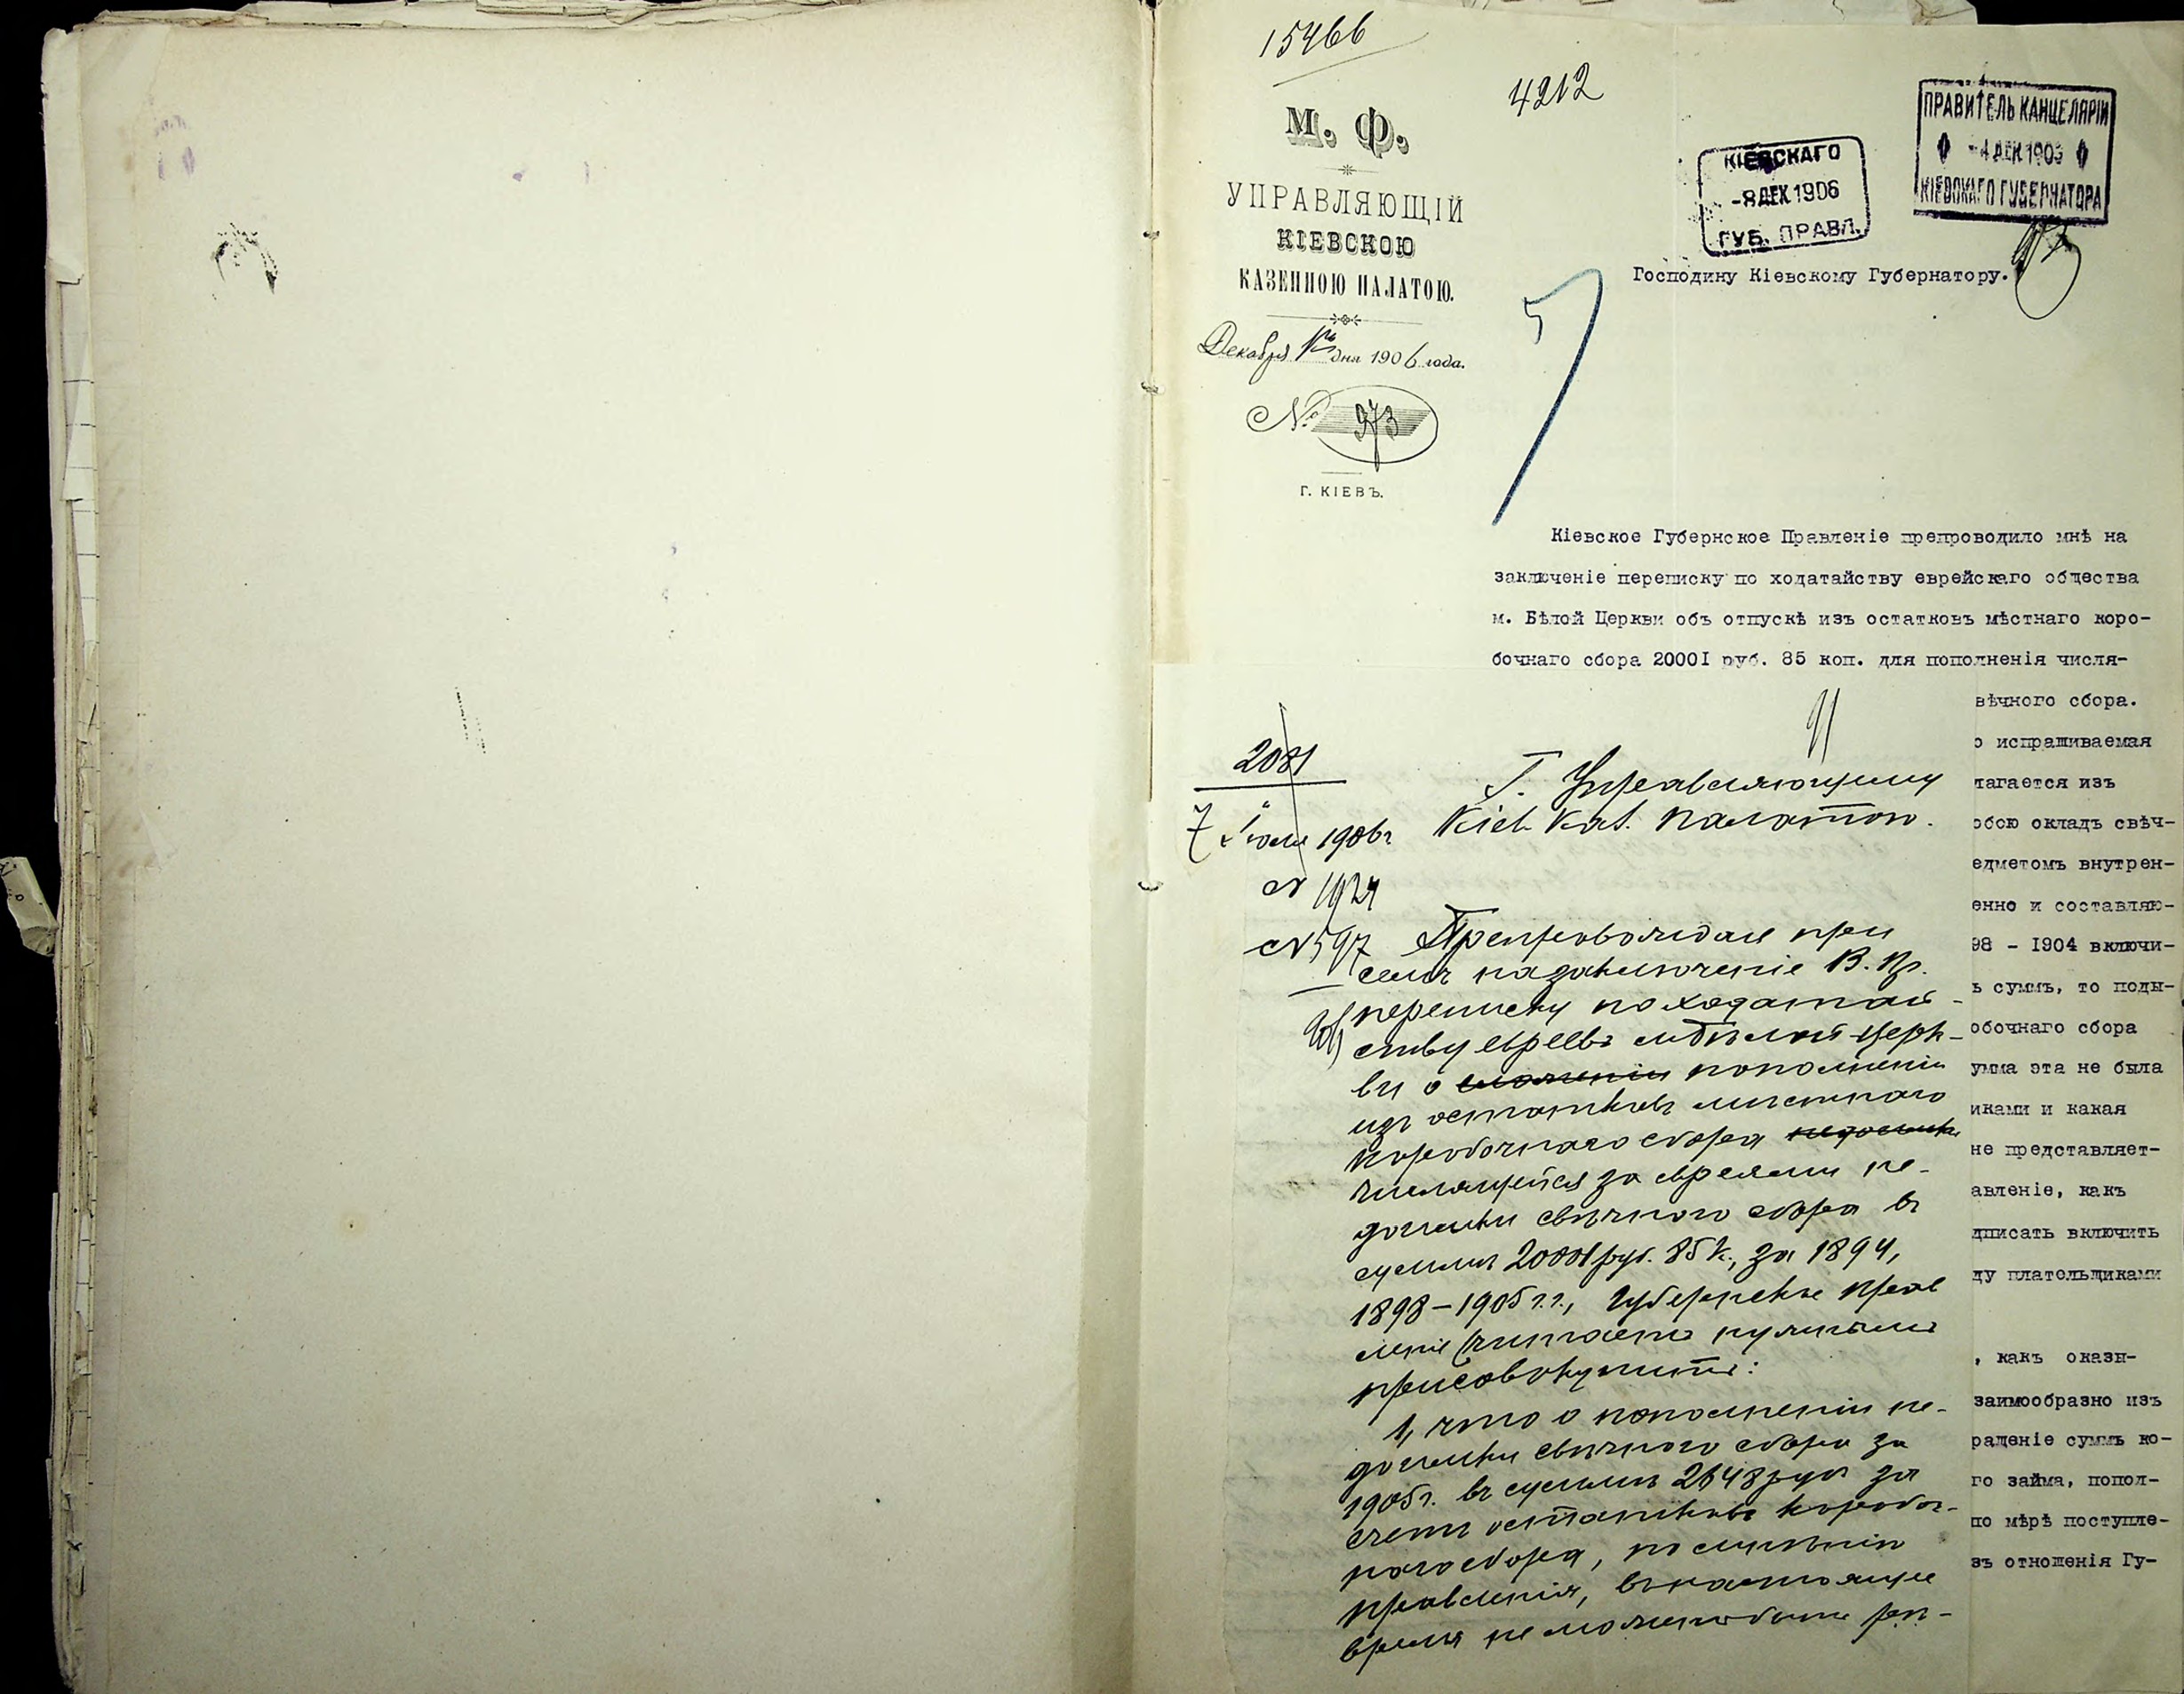 15466
4212
М. Ф.
УПРАВЛЯЮЩІЙ
КІЕВСКОЮ
КАЗЕННОЮ ПАЛАТОЮ.
Декабря дня 1906 года.
№ 973
Г. КІЕВЪ.
КІЕВСКАГО
-8 ДЕК 1906
ГУБ. ПРАВЛ.
ПРАВИТЕЛЬ КАНЦЕЛЯРІИ
-4 ДЕК 1906
КІЕВСКАГО ГУБЕРНАТОРА
Господину Кіевскому Губернатору.
Кіевское Губернское Правленіе препроводило мнѣ на
заключеніе переписку по ходатайству еврейскаго общества
м. Бѣлой Церкви объ отпускѣ изъ остатковъ мѣстнаго коро-
бочнаго сбора 2000I руб. 85 коп. для пополненія числя-
вѣчного сбора.
о испрашиваемая
лагается изъ
обою окладъ свѣч-
едметомъ внутрен-
енно и составляю-
98 - I904 включи-
ъ суммъ, то поды-
обочнаго сбора
умма эта не была
иками и какая
не представляет-
авленіе, какъ
дписать включить
ду плательщиками
, какъ оказы-
заимообразно изъ
ращеніе суммъ ко-
го займа, попол-
по мѣрѣ поступле-
зъ отношенія Гу-
2081
7 Іюля 1906 г
№ 1924
№ 597
Г. Управляющему
Кіев. Каз. Палатою.
Препровождая при
семъ на заключеніе В. Пр.
переписку по ходатай-
ству евреевъ м. Бѣлой-Церк-
ви о пополненіи
изъ остатковъ мѣстнаго
коробочнаго сбора недоимки
числящейся за евреями не-
доимки свѣчного сбора въ
суммѣ 20001 руб. 85 к., за 1894,
1898-1905 г.г., Губернское Прав
леніе считаетъ нужнымъ
присовокупить:
1, что о пополненіи не-
доимки свѣчного сбора за
1905 г. въ суммѣ 2648 руб за
счетъ остатковъ коробоч-
наго сбора, по мнѣнію
Правленія, въ настоящее
время не можетъ быть рѣ-